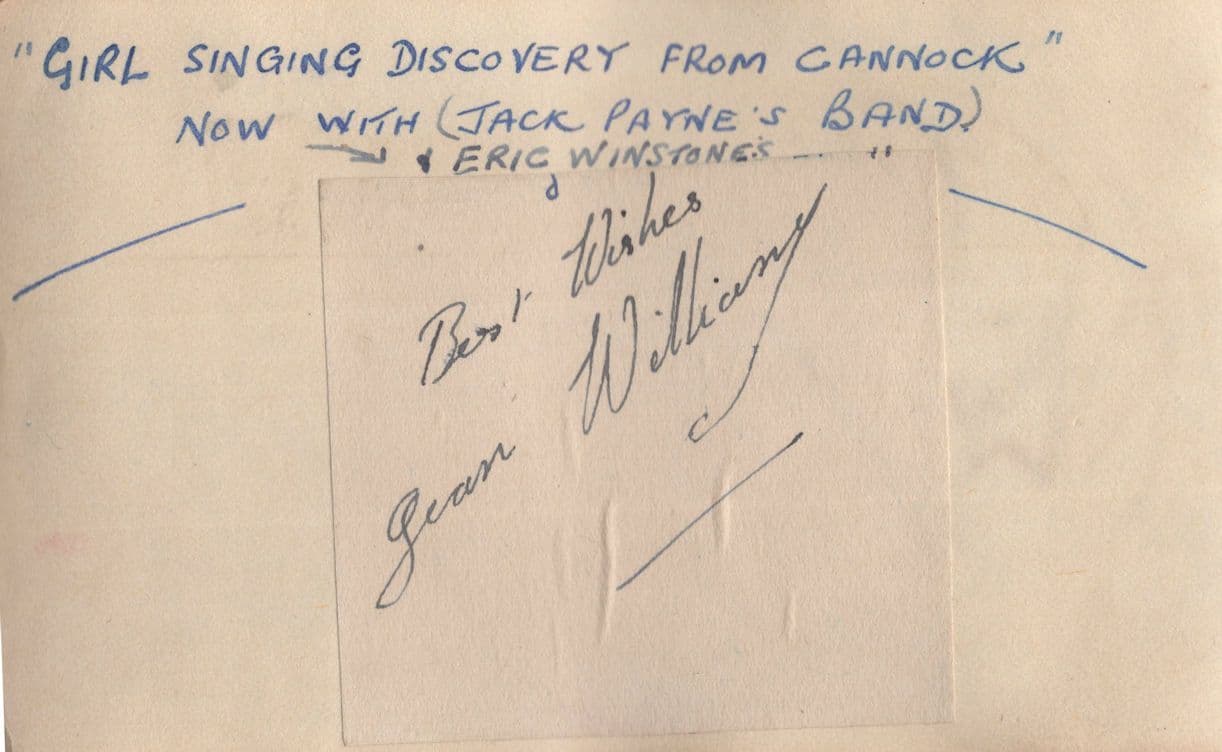 "GIRL SINGING DISCOVERY FROM CANNOCK"
NOW WITH (JACK PAYNE'S BAND)
& ERIC WINSTONE'S — "
Best Wishes
Jean Williams